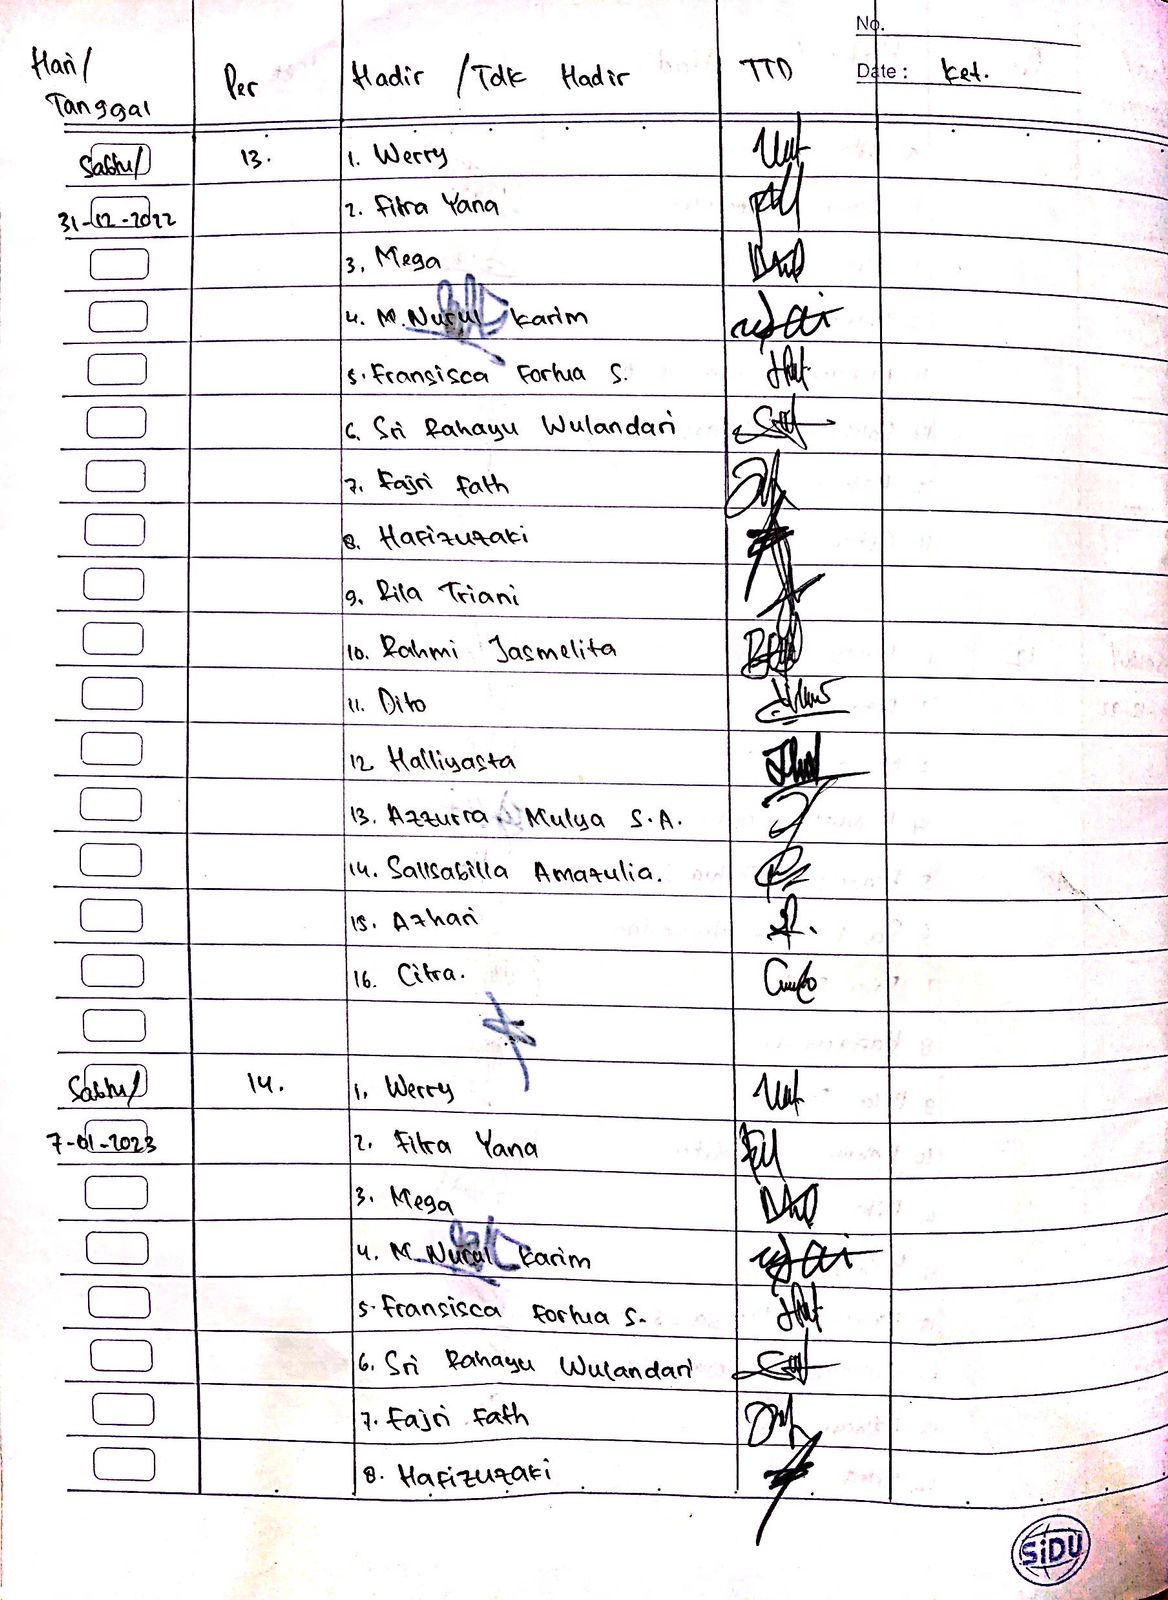 No.
Hari/ Tanggal Per Hadir / Tdk Hadir TTD Date : Ket.
Sabtu/ 13. 1. Werry
31-12-2022 2. Fitra Yana
3. Mega
4. M. Nurul Karim
5. Fransisca Fortua S.
6. Sri Rahayu Wulandari
7. Fajri Fath
8. Hafizuzaki
9. Rila Triani
10. Rahmi Jasmelita
11. Dito
12 Halliyasta
13. Azzurra Mulya S.A.
14. Sallsabilla Amazulia.
15. Azhari
16. Citra.
Sabtu/ 14. 1. Werry
7-01-2023 2. Fitra Yana
3. Mega
4. M. Nurul Karim
5. Fransisca Fortua S.
6. Sri Rahayu Wulandari
7. Fajri Fath
8. Hafizuzaki
SiDU